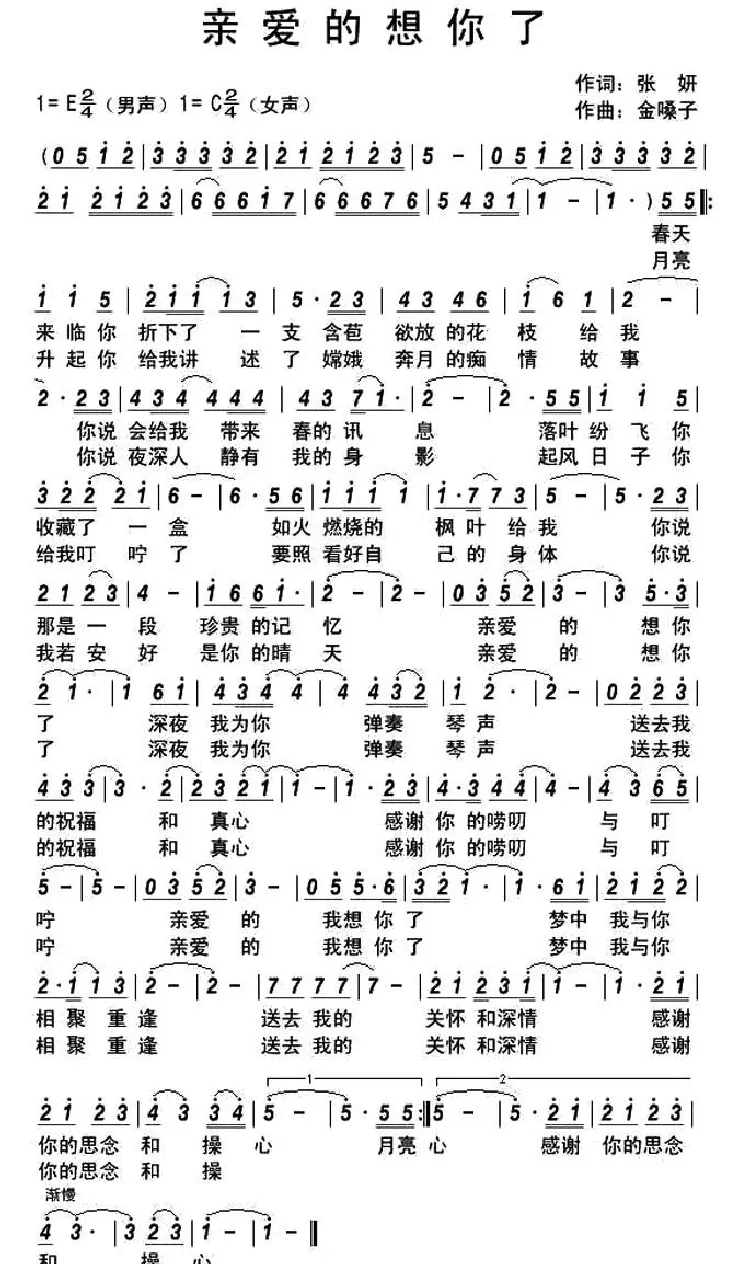 亲爱的想你了
作词：张 妍
1=E2/4（男声）1=C2/4（女声）
作曲：金嗓子
(0 5 1 2 | 3 3 3 3 3 2 | 2 1 2 1 2 3 | 5 - | 0 5 1 2 | 3 3 3 3 3 2 |
2 1 2 1 2 3 | 6 6 6 6 1 7 | 6 6 6 7 6 | 5 4 3 1 | 1 - | 1 · ) 5 5 ‖:
春天
月亮
1 1 5 | 2 1 1 1 3 | 5 · 2 3 | 4 3 4 6 | 1 6 1 | 2 - |
来临你 折下了 一支含苞 欲放的花 枝给我
升起你 给我讲 述了嫦娥 奔月的痴 情故事
2 · 2 3 | 4 3 4 4 4 4 | 4 3 7 1 · | 2 - | 2 · 5 5 | 1 1 5 |
你说会给我 带来 春的讯 息 落叶纷飞你
你说夜深人 静有 我的身 影 起风日子你
3 2 2 2 1 | 6 - | 6 · 5 6 | 1 1 1 1 | 1 · 7 7 3 | 5 - | 5 · 2 3 |
收藏了 一盒 如火燃烧的 枫叶给我 你说
给我叮 咛了 要照看好自 己的身体 你说
2 1 2 3 | 4 - | 1 6 6 1 · | 2 - | 2 - | 0 3 5 2 | 3 - | 3 5 · 3 |
那是一段 珍贵的记忆 亲爱的 想你
我若安好 是你的晴天 亲爱的 想你
2 1 · | 1 6 1 | 4 3 4 4 | 4 4 3 2 | 1 2 · | 2 - | 0 2 2 3 |
了 深夜 我为你 弹奏 琴声 送去我
了 深夜 我为你 弹奏 琴声 送去我
4 3 3 | 3 · 2 | 2 2 3 2 1 | 1 - | 1 · 2 3 | 4 · 3 4 | 4 - | 4 3 6 5 |
的祝福 和 真心 感谢你的唠叨 与叮
的祝福 和 真心 感谢你的唠叨 与叮
5 - | 5 - | 0 3 5 2 | 3 - | 0 5 5 · 6 | 3 2 1 · | 1 · 6 1 | 2 1 2 2 |
咛 亲爱的 我想你了 梦中我与你
咛 亲爱的 我想你了 梦中我与你
2 · 1 1 3 | 2 - | 2 - | 7 7 7 7 | 7 - | 2 1 2 3 1 | 1 - | 1 · 2 1 |
相聚重逢 送去我的 关怀和深情 感谢
相聚重逢 送去我的 关怀和深情 感谢
1 2
2 1 2 3 | 4 3 3 4 | 5 - | 5 · 5 5 :‖ 5 - | 5 · 2 1 | 2 1 2 3 |
你的思念和操 心 月亮心 感谢 你的思念
你的思念和操
渐慢
4 3 · | 3 2 3 | 1 - | 1 - ‖
和 操心